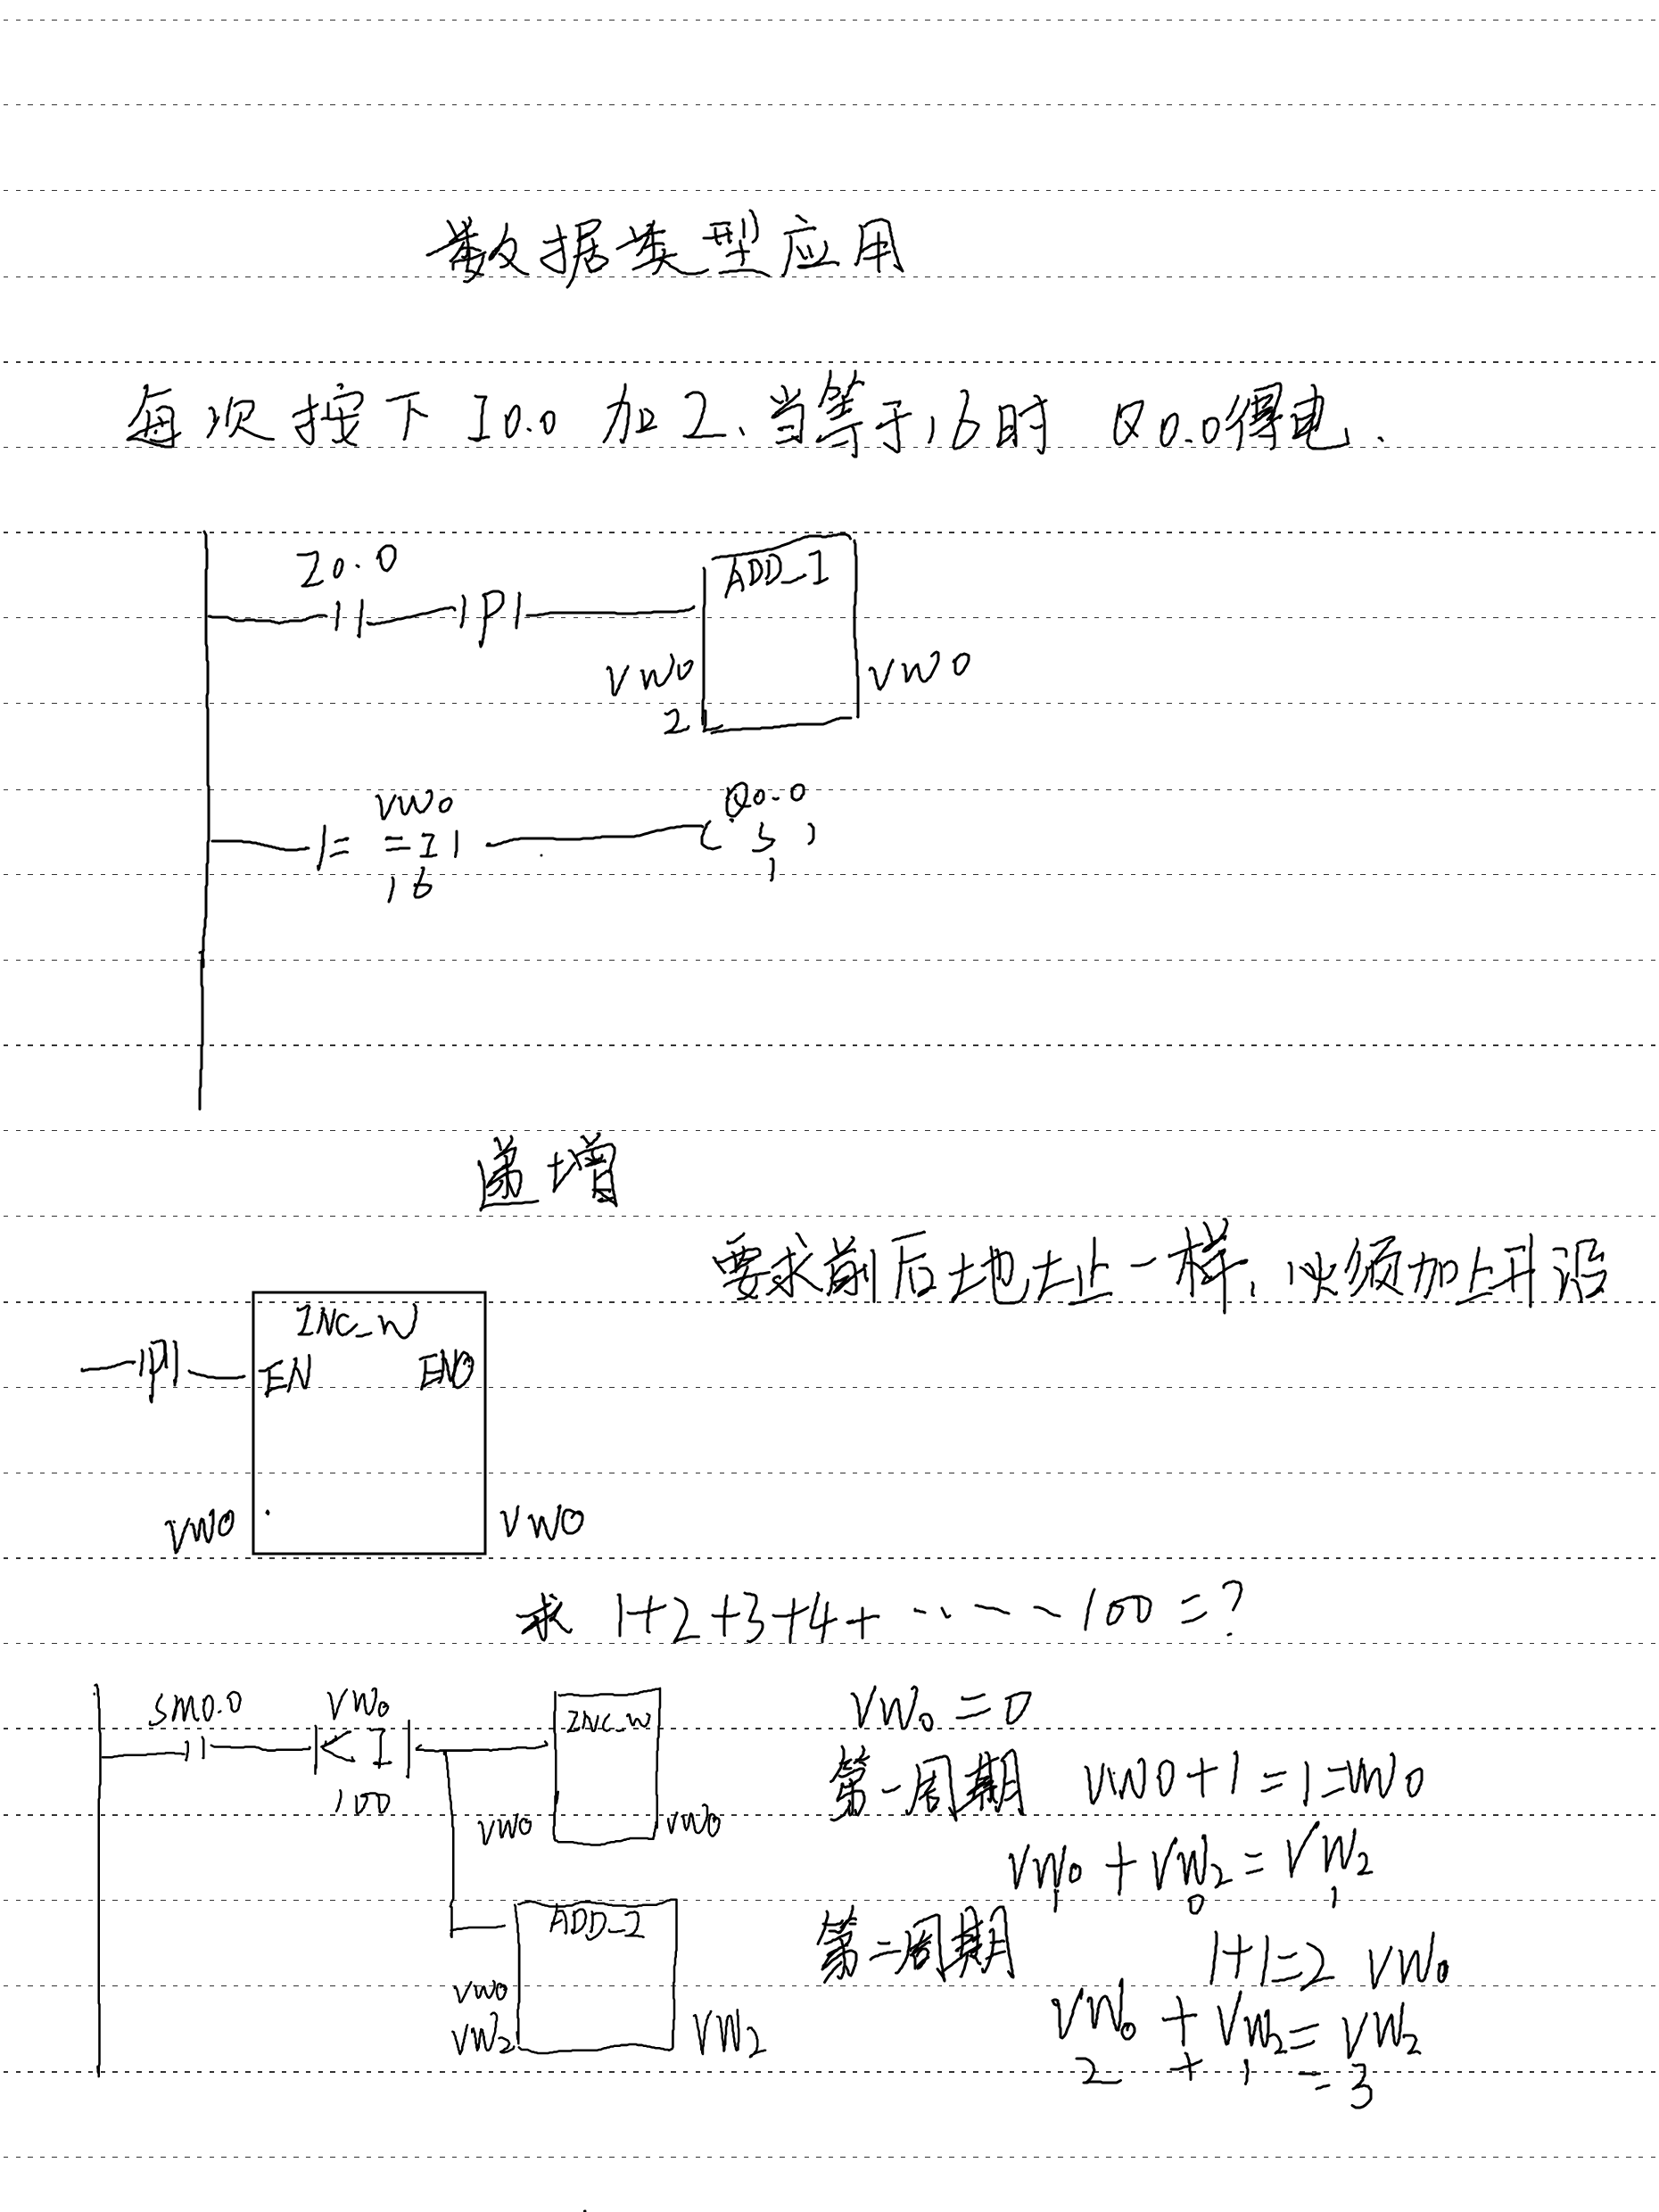 数据类型应用
每次按下 I0.0 加2、当等于16时 Q0.0得电.
I0.0
ADD_I
|P|
VW0 VW0
2
VW0 Q0.0
|= =I| ( S )
16 1
递增
要求前后地址一样, 必须加上升沿
INC_W
|P| EN ENO
VW0 VW0
求 1+2+3+4+……100=?
SM0.0 VW0 INC_W VW0=0
|<I|
100
第一周期 VW0+1=1=VW0
VW0 VW0
VW0+VW2=VW2
1 0 1
ADD_I 第二周期 1+1=2 VW0
VW0
VW2 VW2 VW0+VW2=VW2
2 + 1 = 3